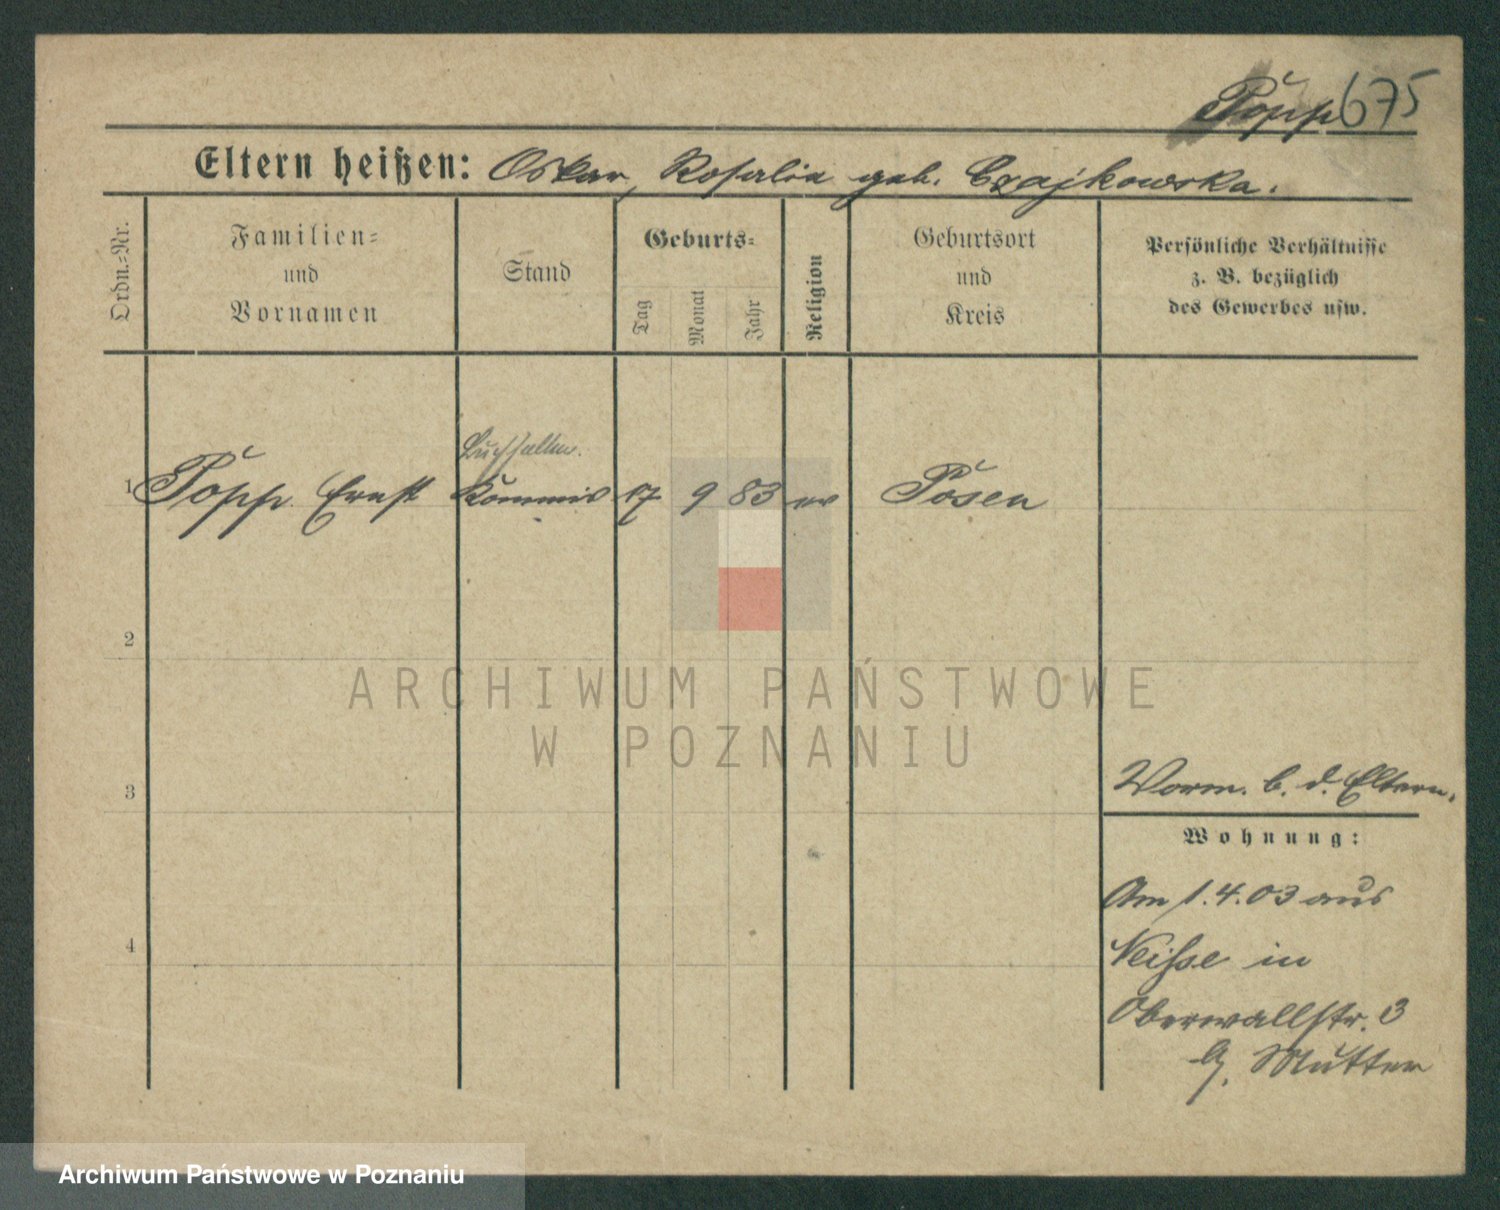 Popp 675
Eltern heißen: Oskar, Rosalia geb. Czajkowska.
Ordn.-Nr.
Familien-
und
Vornamen
Stand
Geburts-
Tag
Monat
Jahr
Religion
Geburtsort
und
Kreis
Persönliche Verhältnisse
z. B. bezüglich
des Gewerbes usw.
Buchhalter.
1 Popp Ernst Kommis 17 9 83 ev Posen
2
3
4
Vorm. b. d. Eltern.
Wohnung:
Am 1.4.03 aus
Neisse in
Oberwallstr. 3
b. Mutter
ARCHIWUM PAŃSTWOWE
W POZNANIU
Archiwum Państwowe w Poznaniu